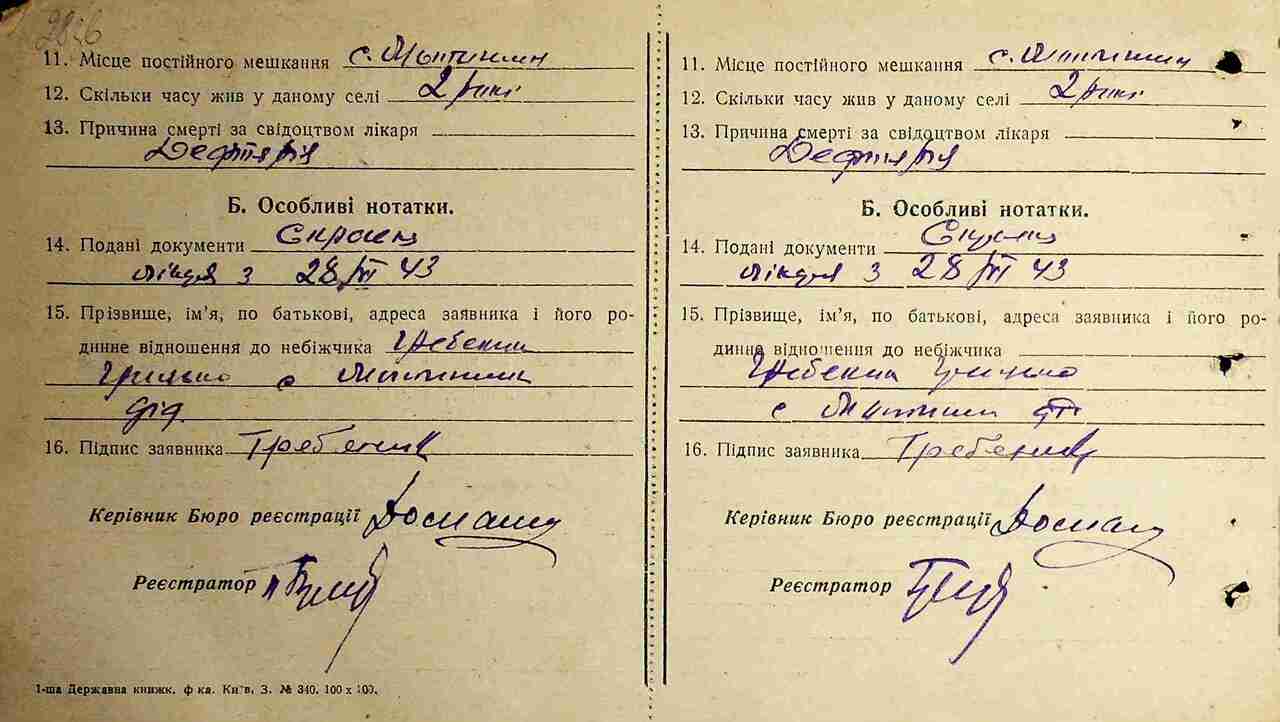 2826
11. Місце постійного мешкання с. Мотижин
12. Скільки часу жив у даному селі 2 роки
13. Причина смерті за свідоцтвом лікаря
Дефтярія
Б. Особливі нотатки.
14. Подані документи
лікаря з 28/VI 43
15. Прізвище, ім'я, по батькові, адреса заявника і його ро-
динне відношення до небіжчика Гребеник
Грицько с Мотижин
дід
16. Підпис заявника Гребеник
Керівник Бюро реєстрації
Реєстратор
1-ша Державна книжк. ф ка. Київ, З. № 340. 100 х 100.
11. Місце постійного мешкання с. Мотижин
12. Скільки часу жив у даному селі 2 роки
13. Причина смерті за свідоцтвом лікаря
Дефтярія
Б. Особливі нотатки.
14. Подані документи
лікаря з 28/VI 43
15. Прізвище, ім'я, по батькові, адреса заявника і його ро-
динне відношення до небіжчика
Гребеник Грицько
с Мотижин дід
16. Підпис заявника Гребеник
Керівник Бюро реєстрації
Реєстратор